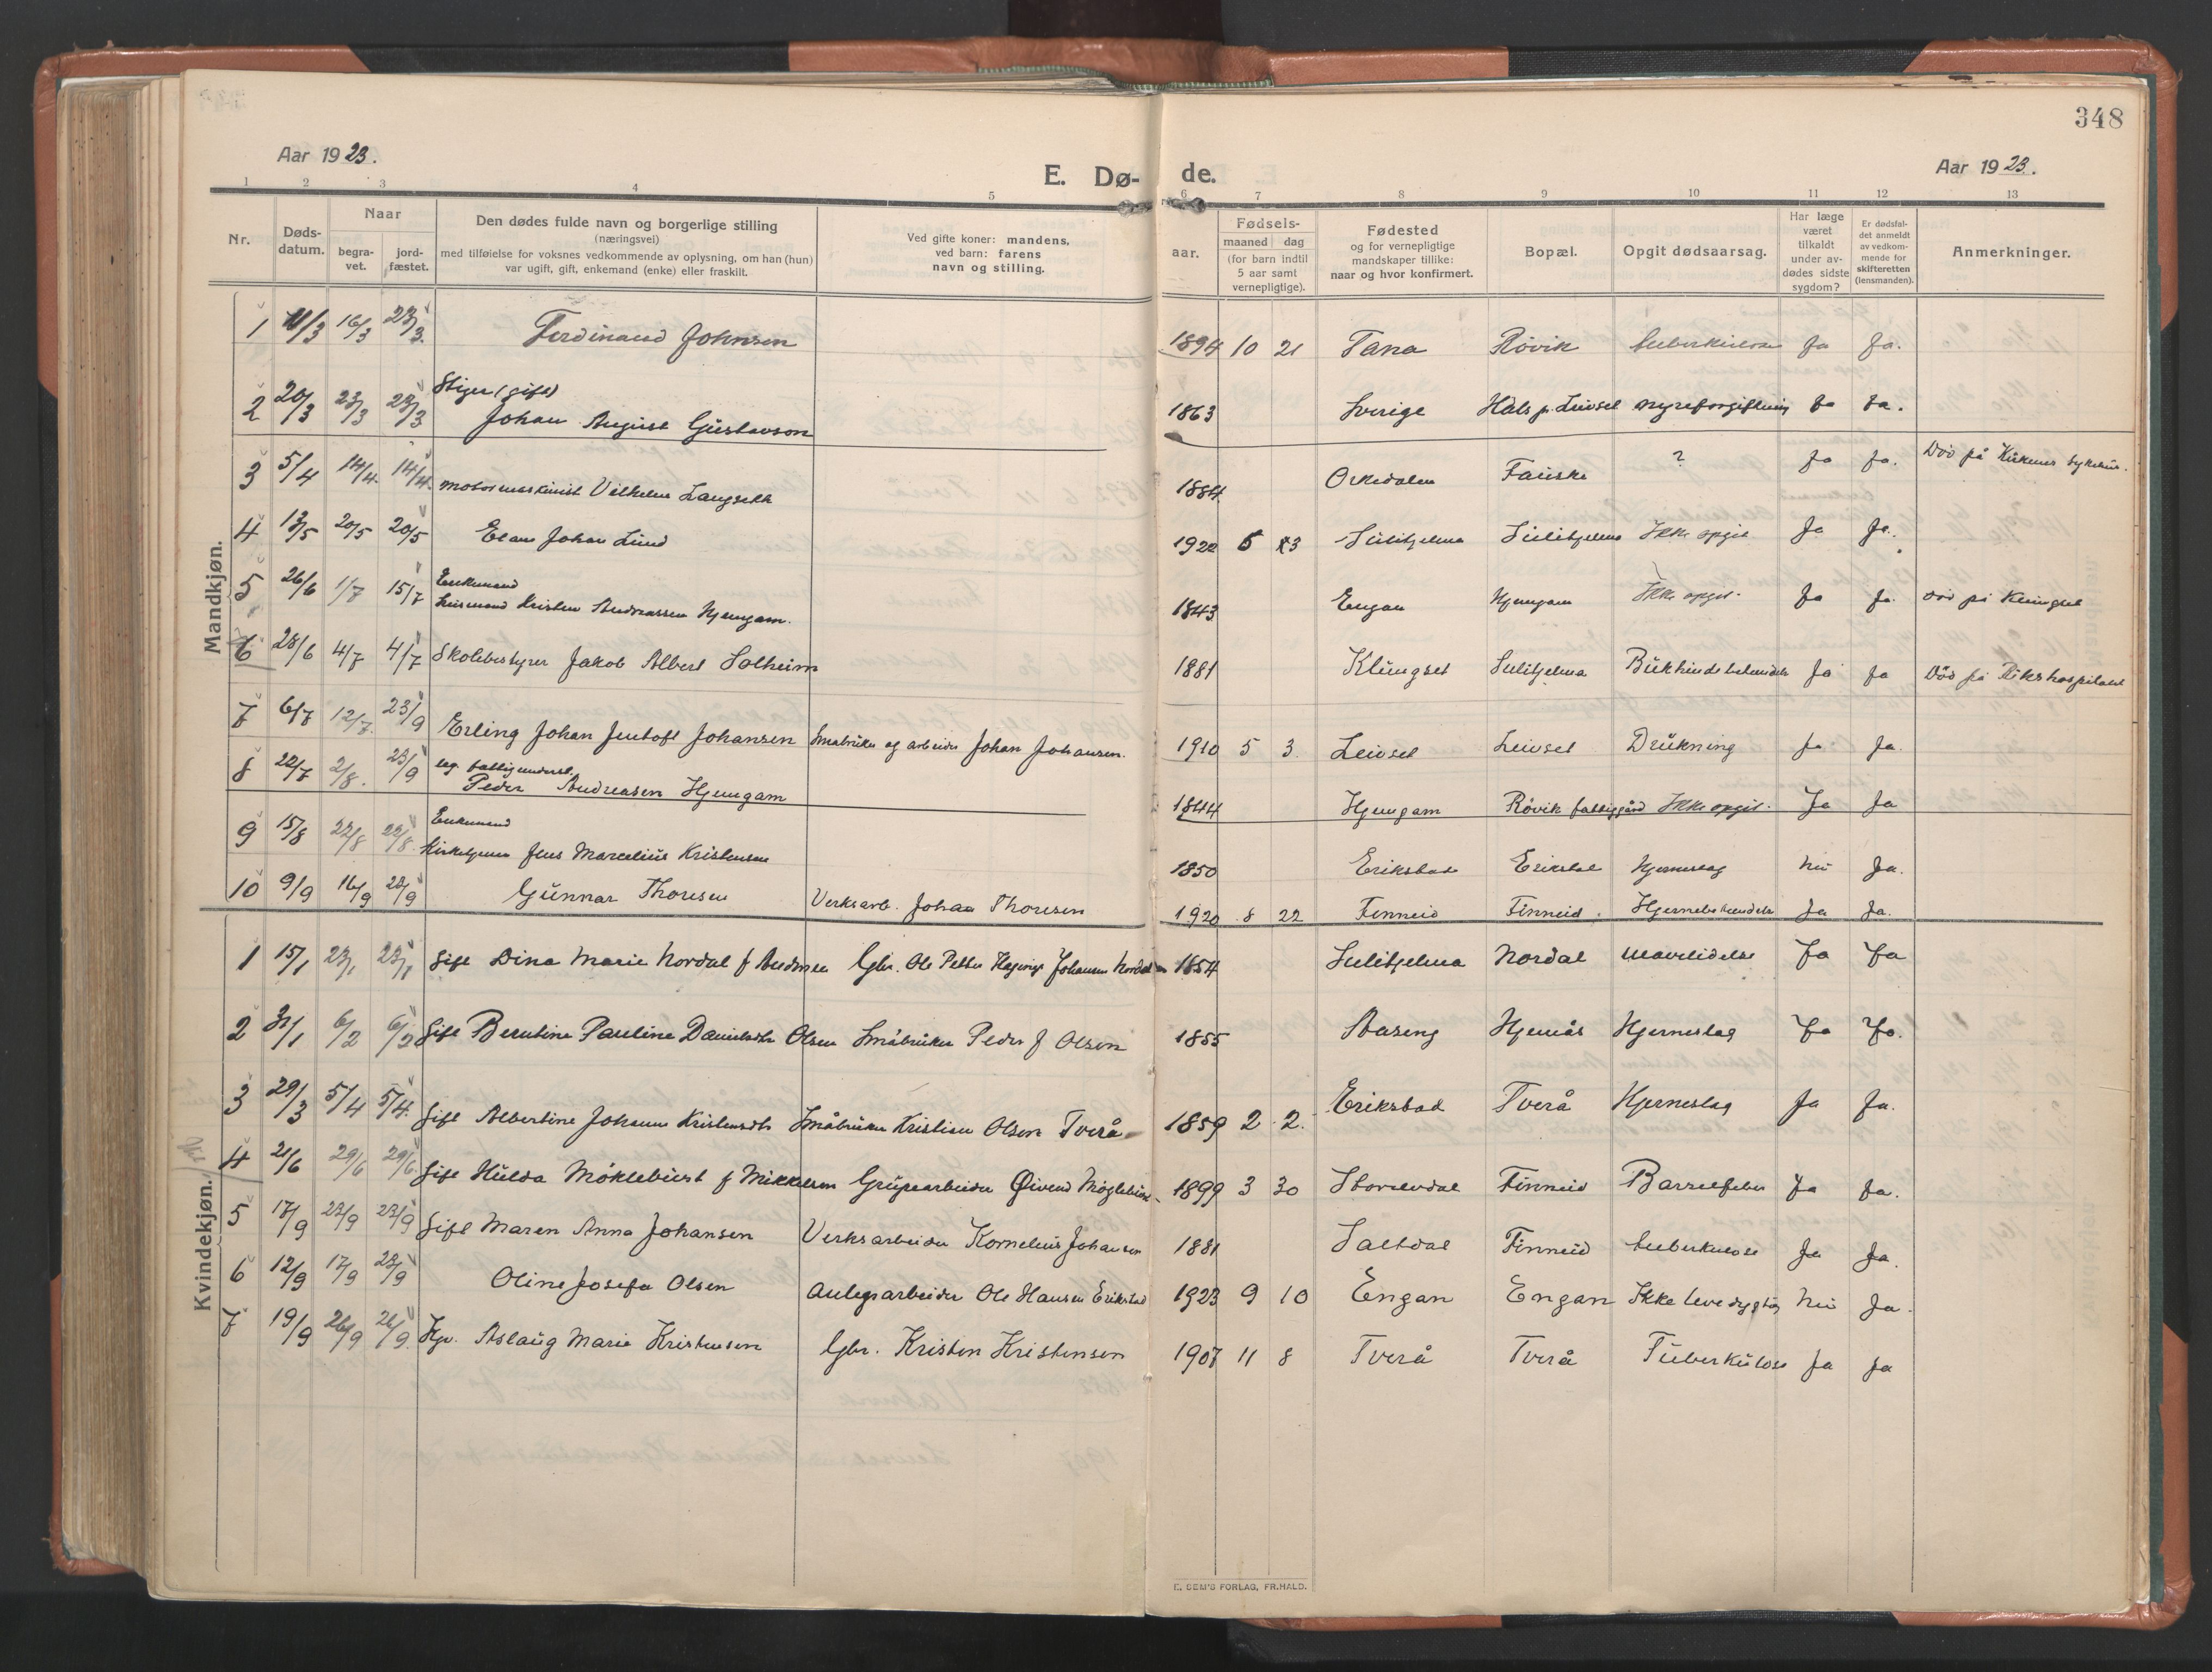 348
Aar 1923.
E. Dø-
de.
Aar 1923.
1 2 3 4 5 6 7 8 9 10 11 12 13
Nr.
Døds-
datum.
Naar
begra-
vet.
jord-
fæstet.
Den dødes fulde navn og borgerlige stilling
(næringsvei)
med tilføielse for voksnes vedkommende av oplysning, om han (hun)
var ugift, gift, enkemand (enke) eller fraskilt.
Ved gifte koner: mandens,
ved barn: farens
navn og stilling.
aar.
Fødsels-
maaned dag
(for barn indtil
5 aar samt
vernepligtige).
Fødested
og for vernepligtige
mandskaper tillike:
naar og hvor konfirmert.
Bopæl.
Opgit dødsaarsag.
Har læge
været
tilkaldt
under av-
dødes sidste
sygdom?
Er dødsfal-
det anmeldt
av vedkom-
mende for
skifteretten
(lensmanden).
Anmerkninger.
Mandkjøn.
1 11/3 16/3 23/3. Ferdinand Johnsen 1894 10 21 Tana Rövik tuberkulose Ja Ja.
Stiger (gift)
2 20/3 23/3 23/3 Johan August Gustavson 1863 Sverige Hals p. Leivset nyreforgiftning Ja Ja.
3 5/4 14/4. 14/4. motormaskinist Vilhelm Langseth 1884 Orkedalen Fauske ? Ja Ja. Död på Kirkenes sykehus.
4 13/5 20/5 20/5 Johan Lund 1922 5 Sulitjelma Sulitjelma Ikke opgit Ja Ja.
Enkemand
5 26/6 1/7 15/7 Kristen Andreassen Hjemgam. 1843 Engan Hjemgam Ikke opgit. Ja Ja. Död på Klungset
6 28/6 4/7 4/7 Skolebestyrer Jakob Albert Solheim 1881 Klungset Sulitjelma Ja Ja Död på Rikshospitalet
7 6/7 12/7. 23/9 Erling Johan Jentoft Johansen Småbruker og arbeider Johan Johansen. 1910 5 3 Leivset Leivset Drukning Ja Ja.
ug. fattigunderst.
8 22/7 2/8. 23/9 Peder Andreasen Hjemgam 1844 Hjemgam Rövik fattiggård Ikke opgit. Ja Ja
Enkemand
9 15/8 22/8 22/8. Kirketjener Jens Marcelius Kristensen 1850 Erikstad Erikstad Hjerneslag Nei Ja.
10 9/9 16/9 23/9 Gunnar Thoresen Verksarb. Johan Thoresen 1920 8 22 Finneid Finneid. Ja Ja.
Kvindekjøn.
1 15/1 23/1 23/1 Gift Dina Marie Nordal f Gbr. Ole Petter Johansen Nordal 1854 Sulitjelma Nordal mavelidelse Ja Ja
2 31/1 6/2 6/2 Gift Berntine Pauline Danielsdtr Olsen Småbruker Peder J Olsen 1855 Aaseng Hjemås Hjerneslag Ja Ja.
3 29/3 5/4 5/4. Gift Albertine Johanna Kristensdtr Småbruker Kristian Olsen Tverå 1859 2 2. Erikstad Tverå Hjerneslag Ja Ja.
4 21/6 29/6 29/6. Gift Hulda Möklebust f Mikkelsen Grubearbeider Øivind 1899 3 30 Finneid Barselfeber Ja Ja.
5 17/9 23/9 23/9 Gift Maren Anna Johansen Verksarbeider Kornelius Johansen 1881 Saltdal Finneid tuberkulose Ja Ja.
6 12/9 17/9 23/9 Oline Josefa Olsen Anlegsarbeider Ole Hansen Erikstad 1923 9 10 Engan Engan Ikke levedygtig Nei Ja.
7 19/9 26/9 26/9. Hjv. Aslaug Marie Kristensen Gbr. Kristen Kristensen 1907 11 8 Tverå Tverå Tuberkulose Ja Ja
E. SEM'S FORLAG, FR.HALD.